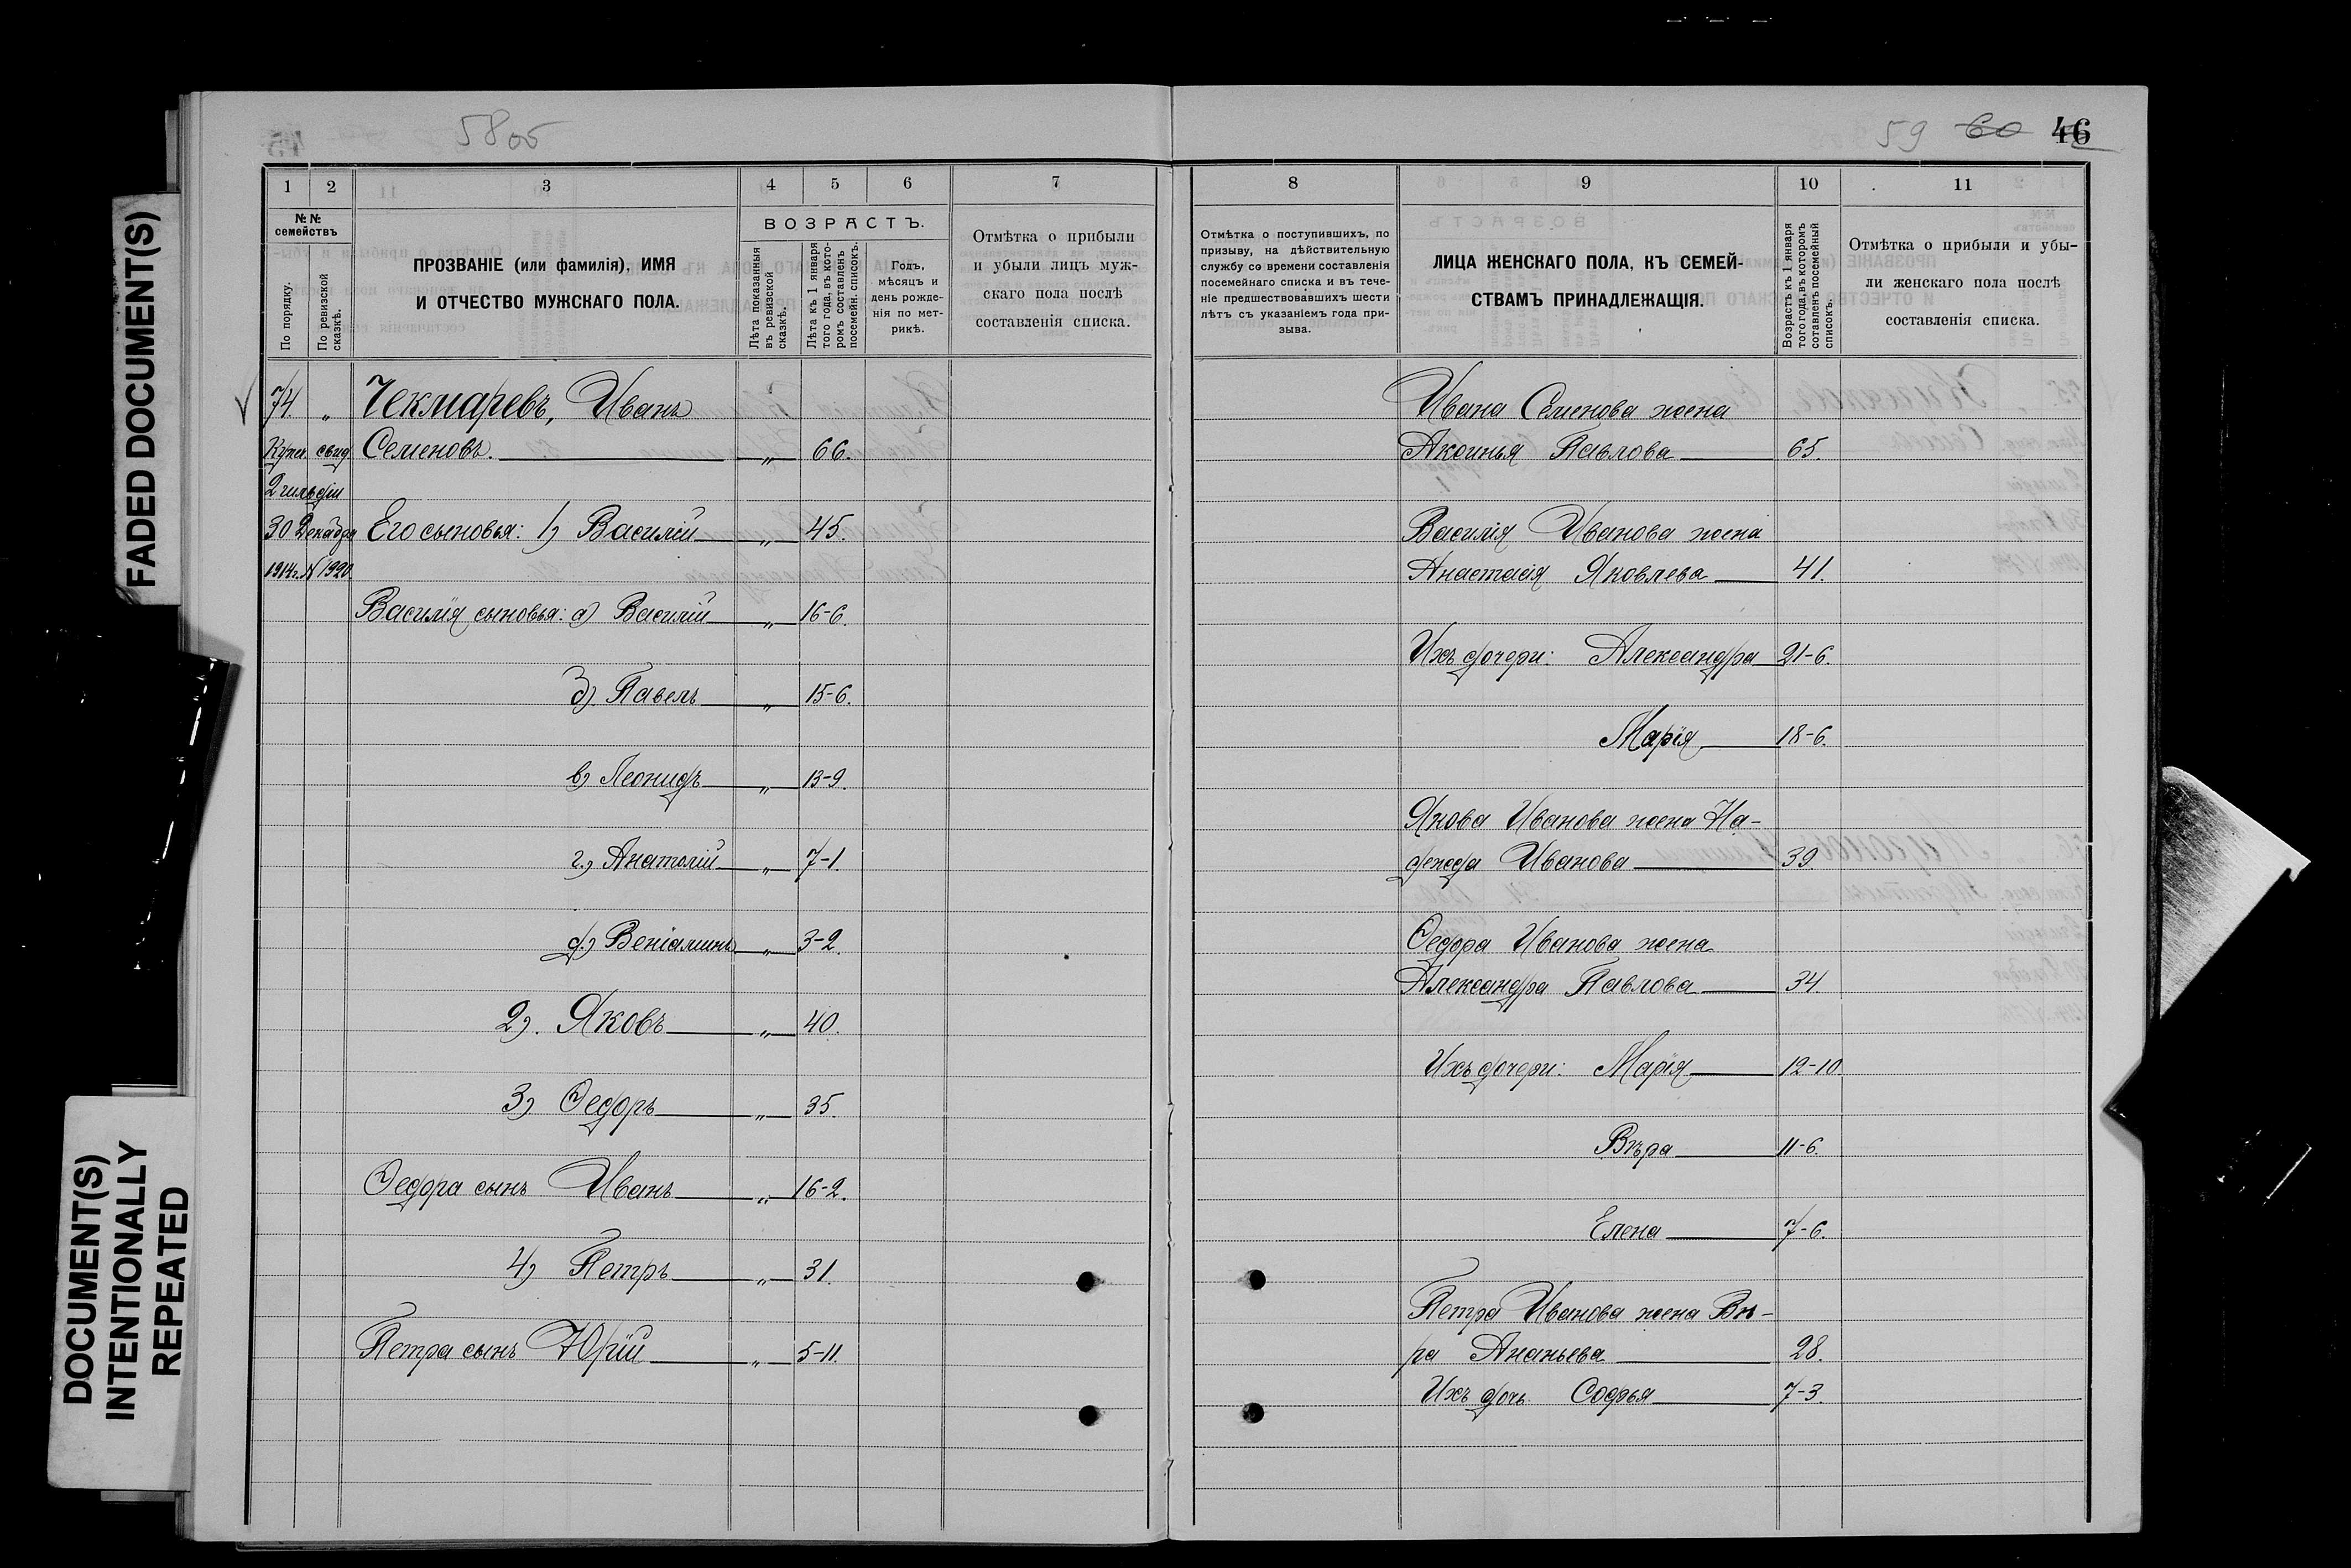 FADED DOCUMENT(S)
DOCUMENT(S)
INTENTIONALLY
REPEATED
58 об
1 2 3 4 5 6 7
№№
семействъ
По порядку.
По ревизской сказкѣ.
ПРОЗВАНІЕ (или фамилія), ИМЯ
И ОТЧЕСТВО МУЖСКАГО ПОЛА.
ВОЗРАСТЪ.
Лѣта показанныя
въ ревизской
сказкѣ.
Лѣта къ 1 января
того года, въ кото-
ромъ составленъ
посемейн. списокъ.
Годъ,
мѣсяцъ и
день рожде-
нія по мет-
рикѣ.
Отмѣтка о прибыли
и убыли лицъ муж-
скаго пола послѣ
составленія списка.
74 „ Чекмаревъ, Иванъ
Купеч. свид Семеновъ. „ 66.
2 гильдіи
30 Декабря Его сыновья: 1) Василій „ 45.
1914г. № 1920
Василія сыновья: а) Василій „ 16-6.
б). Павелъ „ 15-6.
в) Леонидъ „ 13-9.
г) Анатолій „ 7-1.
д) Веніаминъ „ 3-2.
2). Яковъ „ 40.
3) Ѳедоръ „ 35.
Ѳедора сынъ Иванъ „ 16-2.
4) Петръ „ 31.
Петра сынъ Юрій „ 5-11.
59 60 46
8 9 10 11
Отмѣтка о поступившихъ, по
призыву, на дѣйствительную
службу со времени составленія
посемейнаго списка и въ тече-
ніе предшествовавшихъ шести
лѣтъ съ указаніемъ года при-
зыва.
ЛИЦА ЖЕНСКАГО ПОЛА, КЪ СЕМЕЙ-
СТВАМЪ ПРИНАДЛЕЖАЩІЯ.
Возрастъ къ 1 января
того года, въ которомъ
сотавленъ посемейный
списокъ.
Отмѣтка о прибыли и убы-
ли женскаго пола послѣ
составленія списка.
Ивана Семенова жена
Аксинья Павлова 65.
Василія Иванова жена
Анастасія Яковлева 41.
Ихъ дочери: Александра 21-6.
Марія 18-6.
Якова Иванова жена На-
дежда Иванова 39.
Ѳедора Иванова жена
Александра Павлова 34
Ихъ дочери: Марія 12-10.
Вѣра 11-6.
Елена 7-6.
Петра Иванова жена Вѣ-
ра Ананьева 28.
Ихъ дочь Софья 7-3.